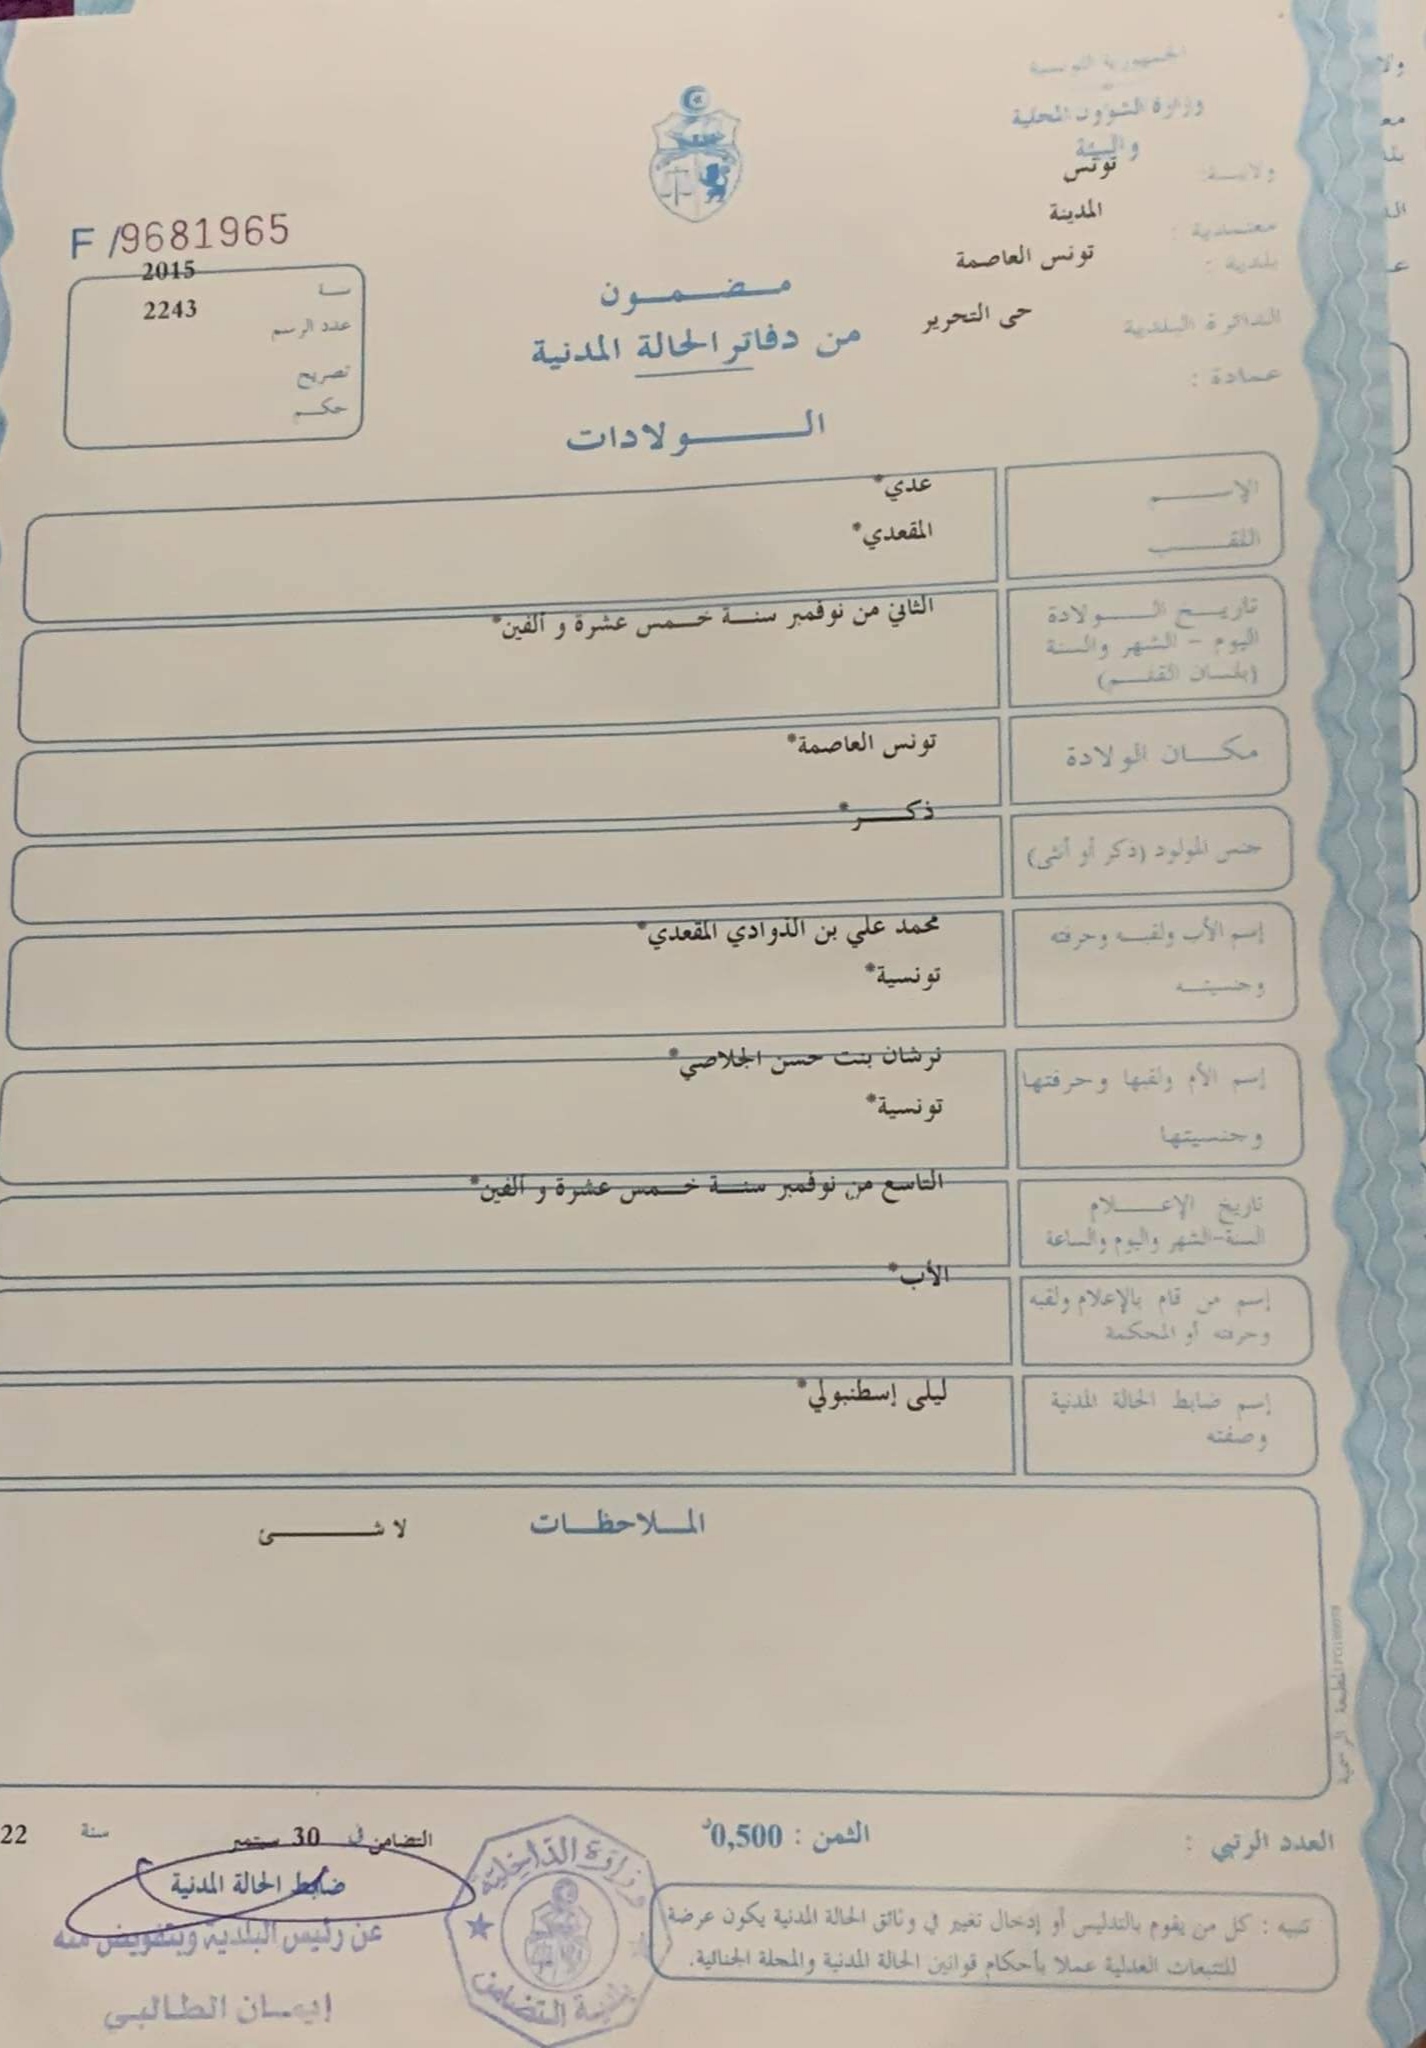 الجمهورية التونسية
وزارة الشؤون المحلية
و البيئة
ولايـــة: تونس
معتمدية : المدينة
بلدية : تونس العاصمة
الدائرة البلدية حى التحرير
عمادة :
F /9681965
2015
عدد الرسم 2243
تصريح
حكـــم
مـــضـــمـــون
من دفاتر الحالة المدنية
الـــــولادات
الإســـــم عدي*
اللقـــــب المقعدي*
تاريـــخ الـــــولادة الثاني من نوفمبر سنـــة خـــمس عشرة و ألفين*
اليوم - الشهر والسنة
(بلسان القلـــم)
مكـــان الولادة تونس العاصمة*
جنس المولود (ذكر أو أنثى) ذكـــــر*
إسم الأب ولقبـــه وحرفته محمد علي بن الذوادي المقعدي*
وجنسيتـــه تونسية*
إسم الأم ولقبها وحرفتها نرشان بنت حسن الجلاصي*
وجنسيتها تونسية*
تاريخ الإعـــــلام التاسع من نوفمبر سنـــة خـــمس عشرة و ألفين*
السنة-الشهر واليوم والساعة
إسم من قام بالإعلام ولقبه الأب*
وحرفته أو المحكمة
إسم ضابط الحالة المدنية ليلى إسطنبولي*
وصفته
المـــلاحظـــات لا شـــــئ
العدد الرتبي :
الثمن : 0,500د
التضامن في 30 سبتمبر سنة 22
ضابط الحالة المدنية
عن رئيس البلدية وبتفويض منه
إيمـــان الطـالبـي
وزارة الداخلية
بلدية التضامن
تنبيه : كل من يقوم بالتدليس أو إدخال تغيير في وثائق الحالة المدنية يكون عرضة
للتتبعات العدلية عملا بأحكام قوانين الحالة المدنية والمجلة الجنائية.